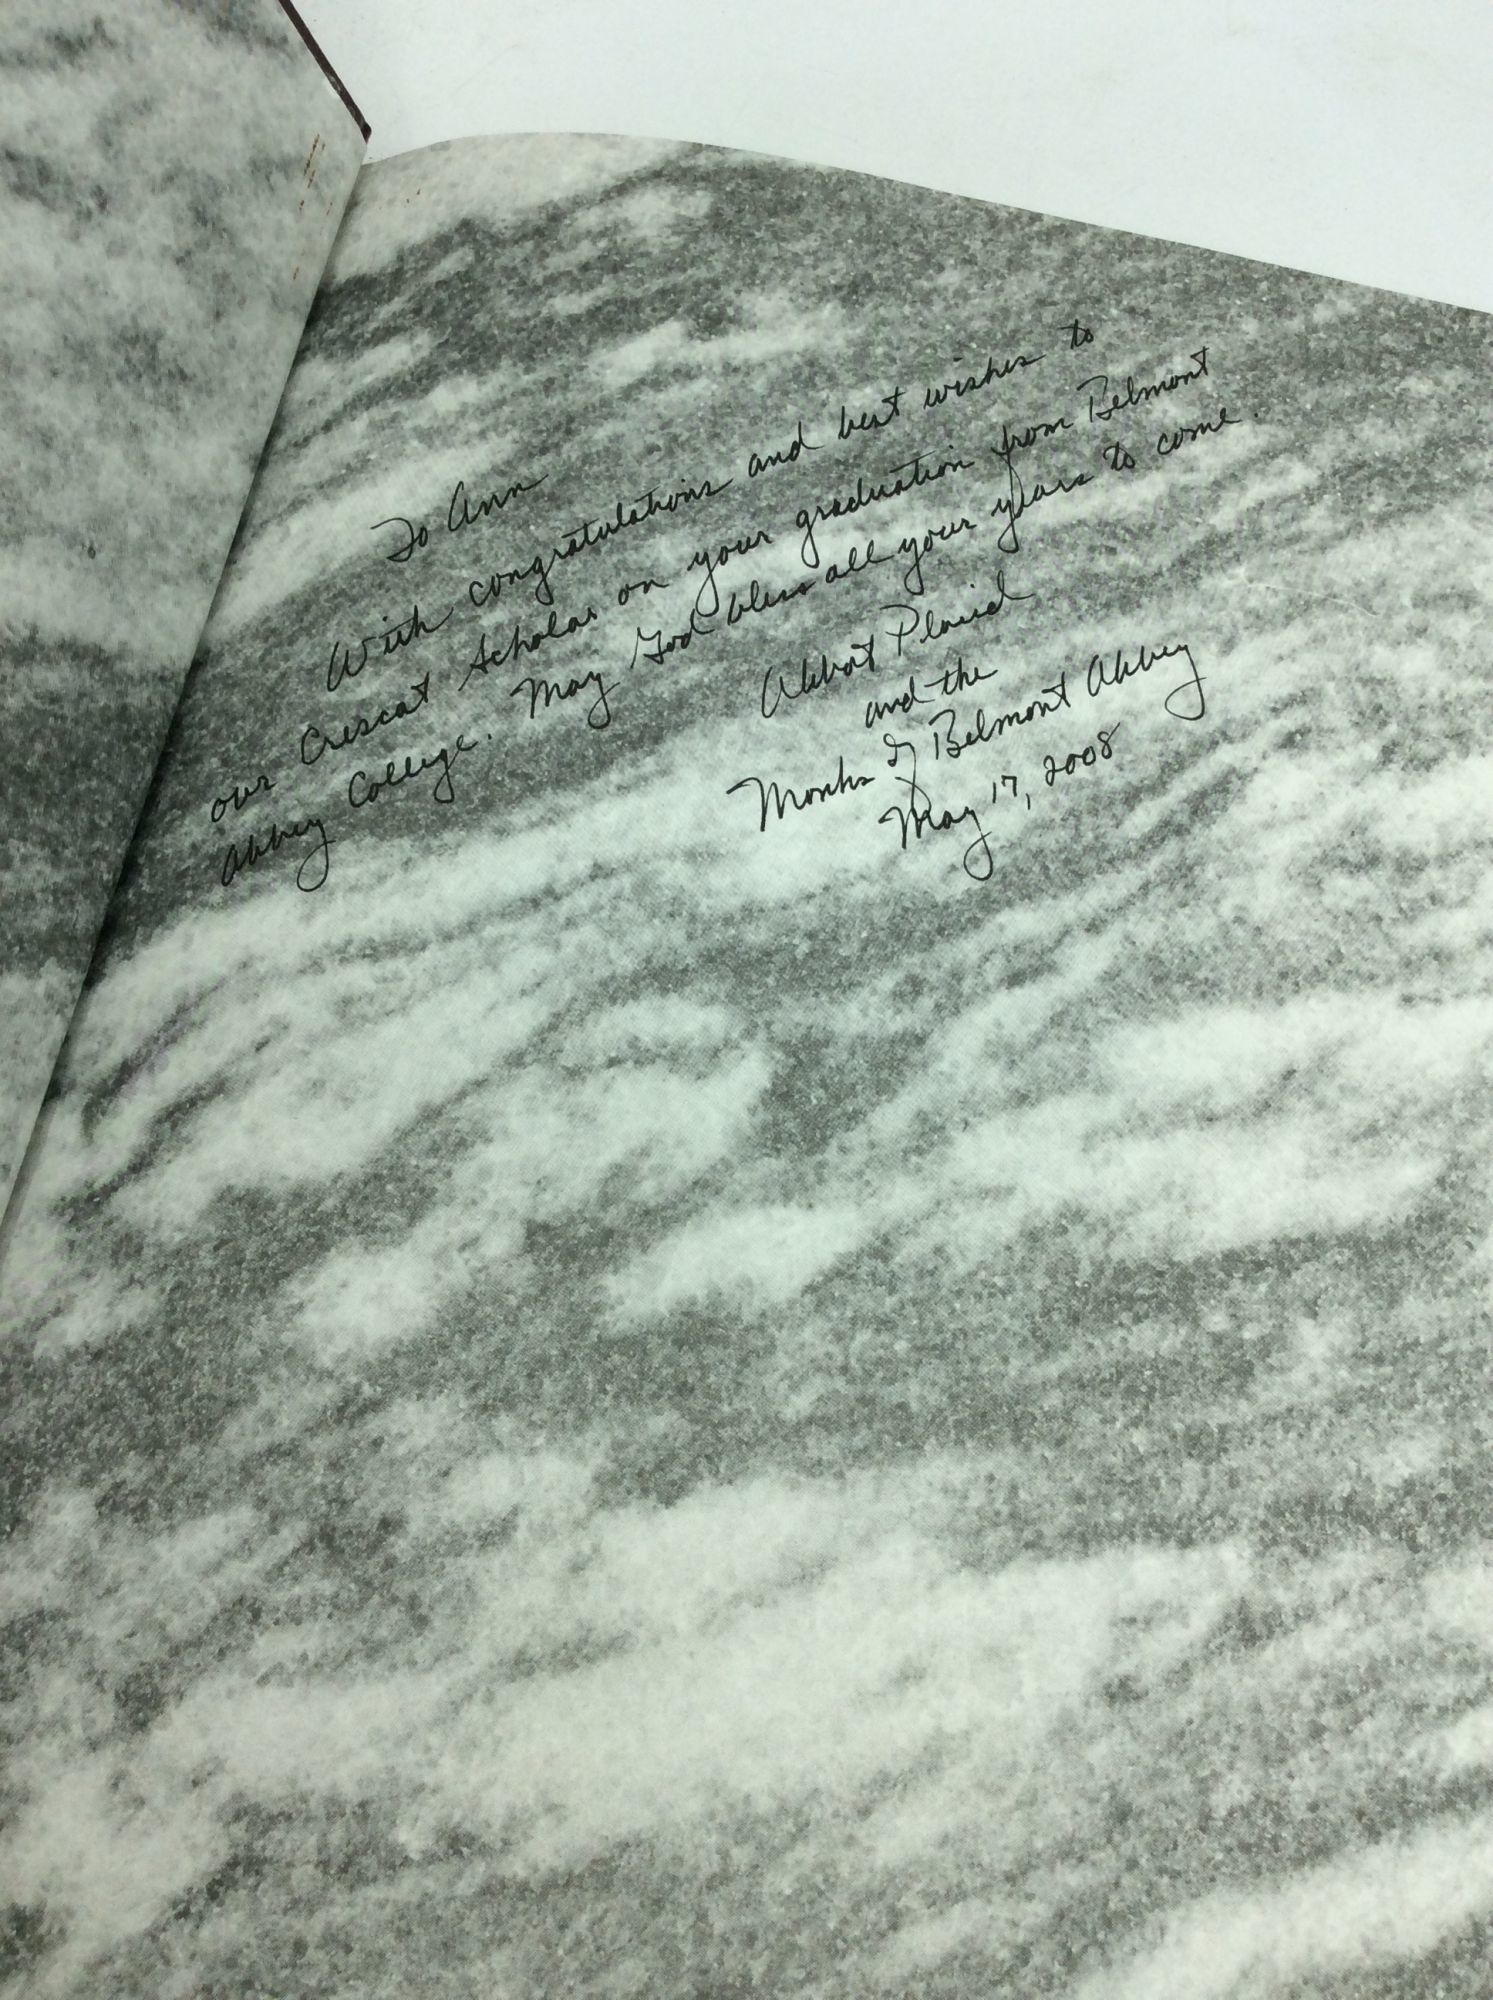 To Ann
With congratulations and best wishes to
our Crescat Scholar on your graduation from Belmont
Abbey College. May God bless all your years to come.
Abbot Placid
and the
Monks of Belmont Abbey
May 17, 2008